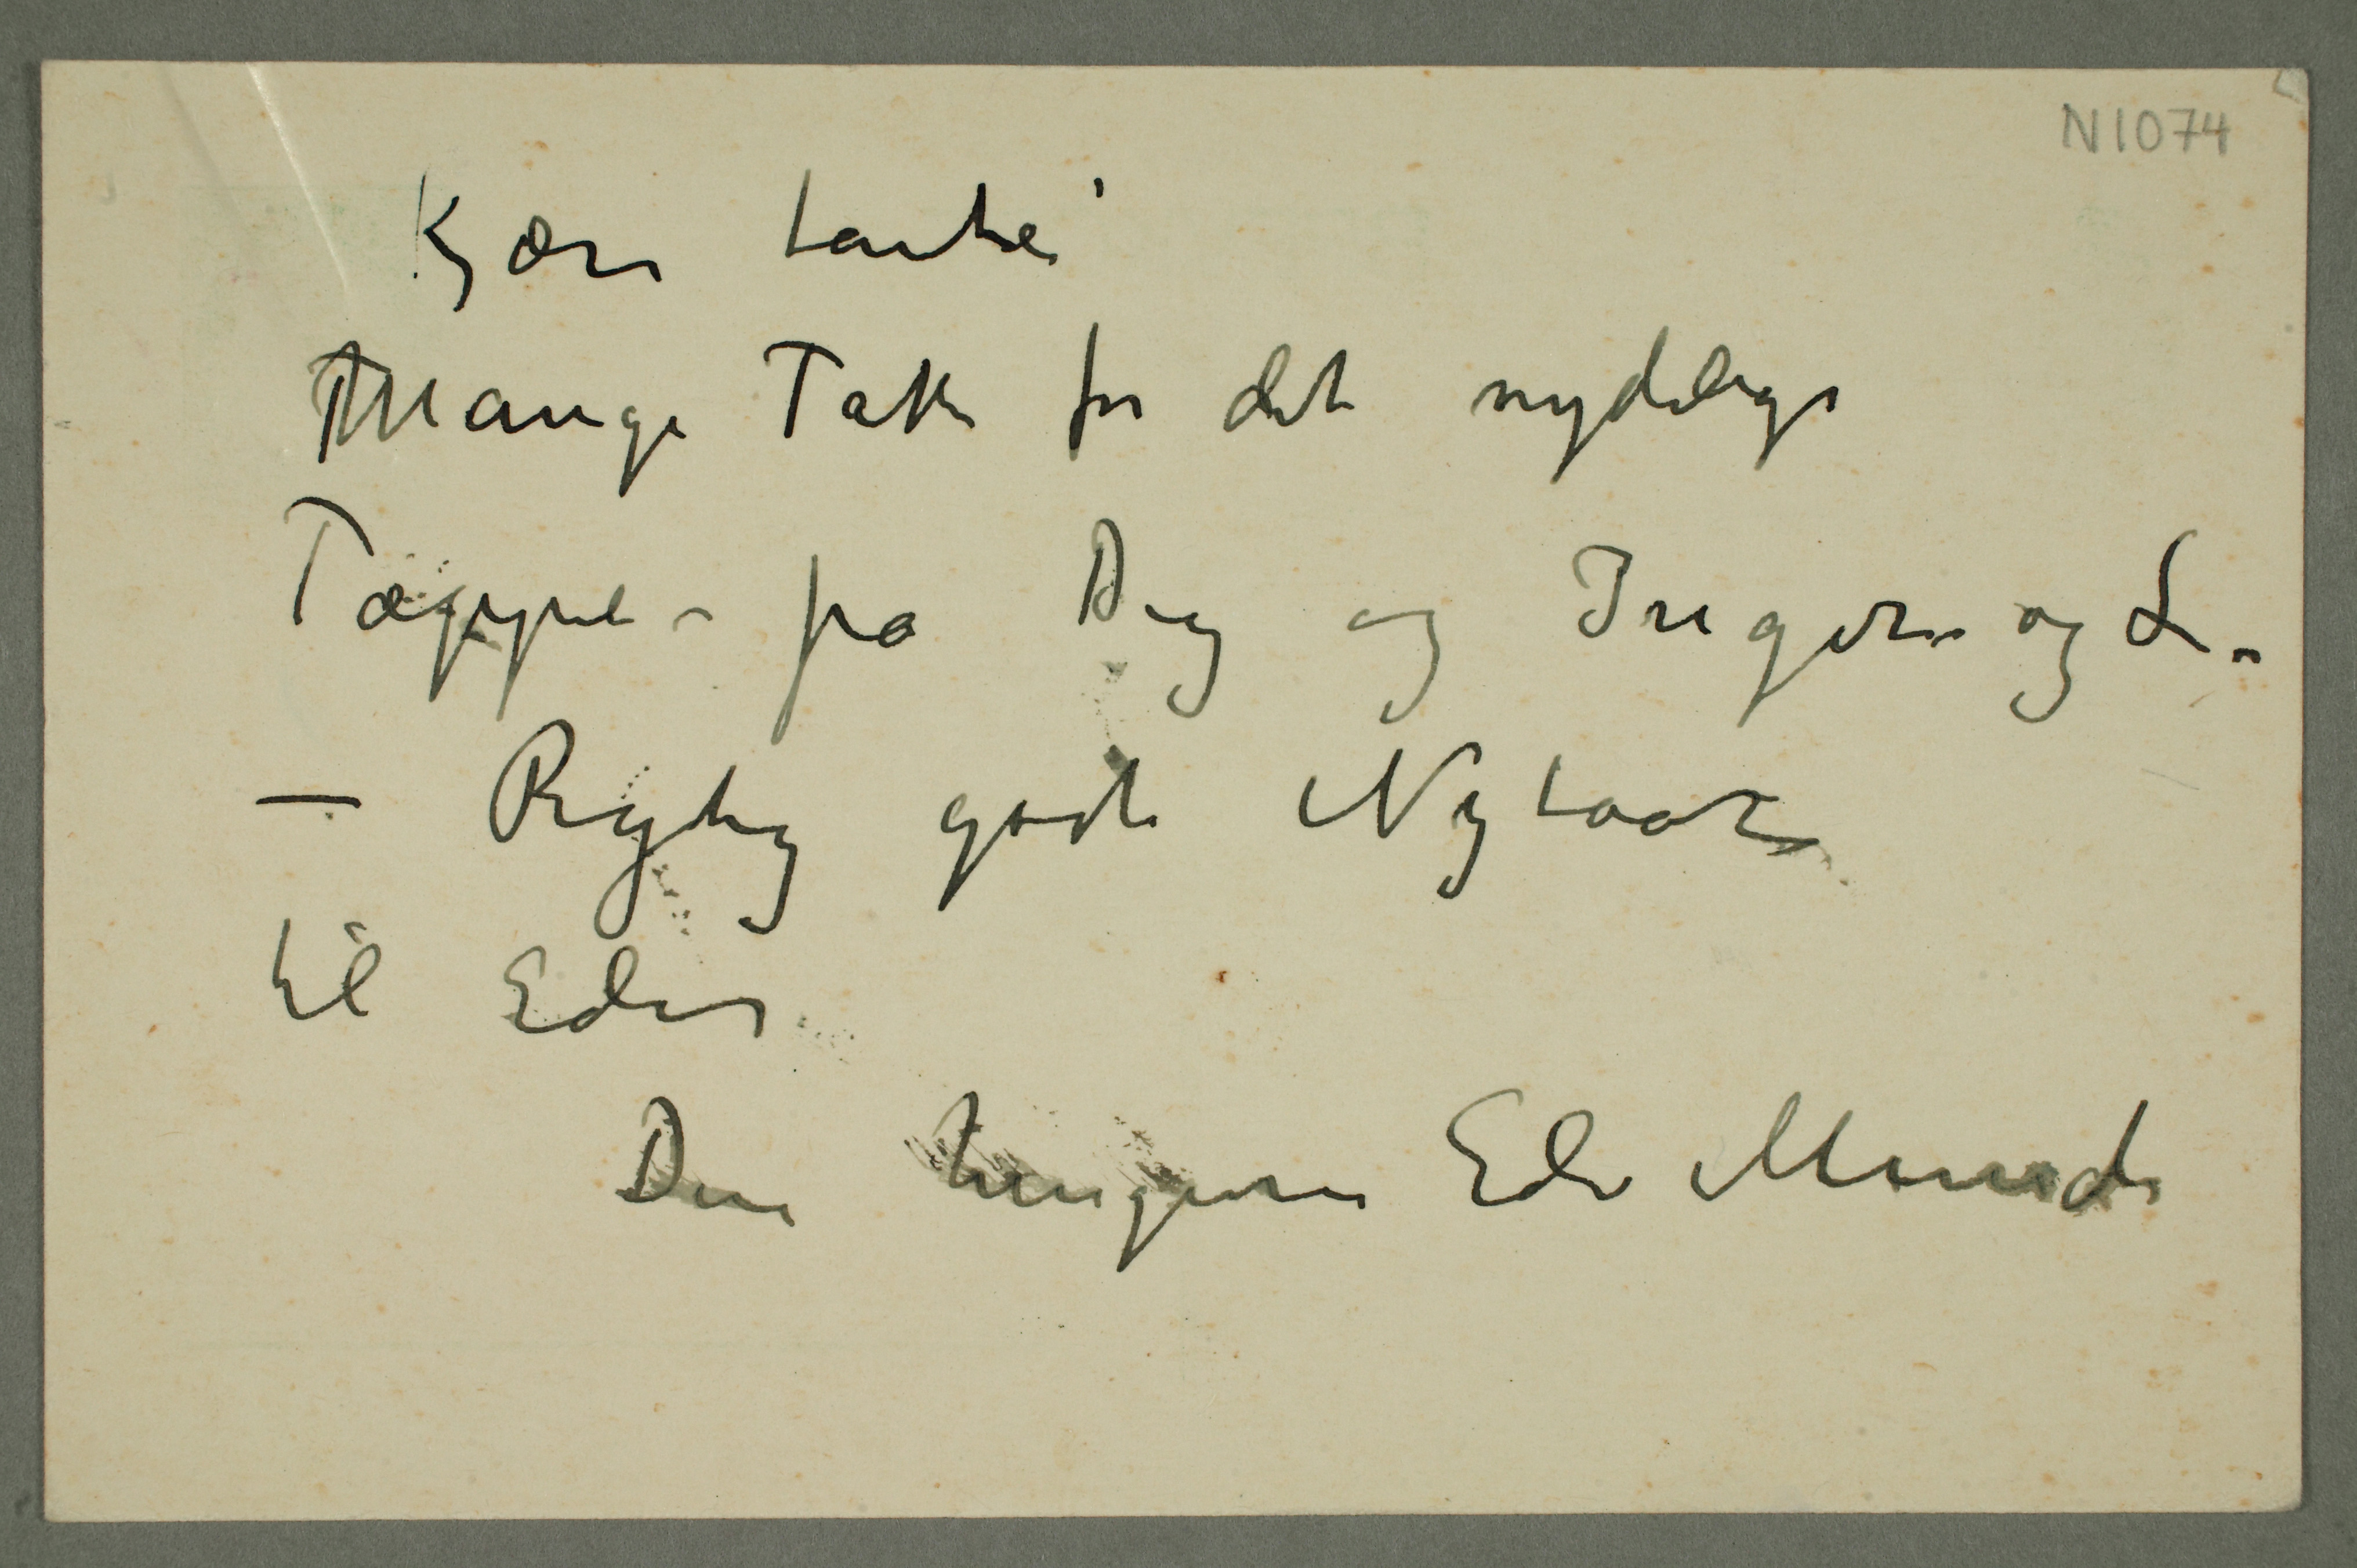 N 1074
Kjære tante!
Mange Tak for det nydelige
Tæppe – fra Dig og Inger og L.
— Rigtig godt Nytaar
til Eder
Din hengivne Edv Munch